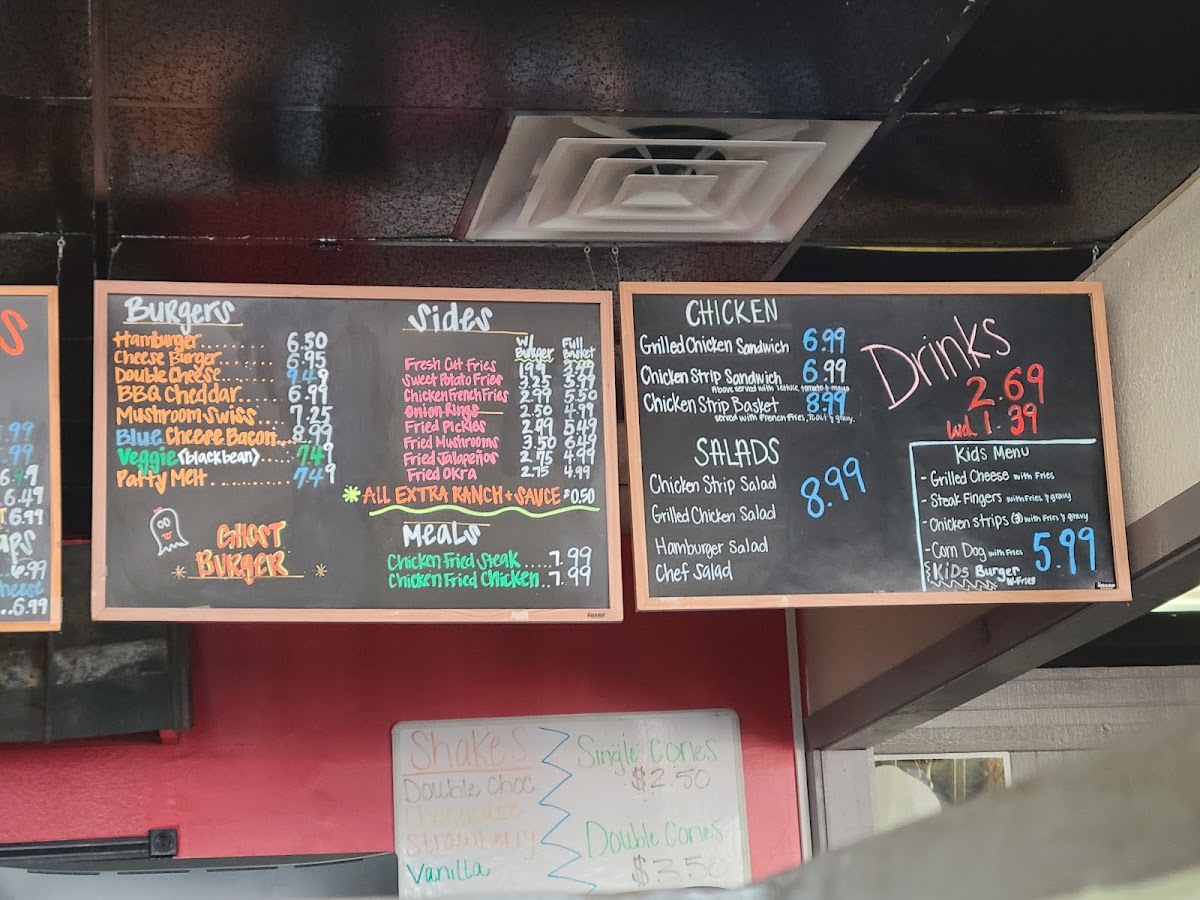 S
.99
.99
6.49
6.99
aps
6.99
..6.99
Burgers
Hamburger........ 6.50
Cheese Burger....... 6.95
Double Cheese....... 9.49
BBQ Cheddar....... 6.99
Mushroom Swiss... 7.25
Blue Cheese Bacon... 8.99
Veggie (black bean)..... 7.49
Patty Melt ............ 7.49
Ghost
Burger
Sides
W/ Burger Full Basket
Fresh Cut Fries 1.99 3.99
Sweet Potato Fries 3.25 5.99
Chicken French Fries 2.99 5.50
Onion Rings 2.50 4.99
Fried Pickles 2.99 5.49
Fried Mushrooms 3.50 6.49
Fried Jalapeños 2.75 4.99
Fried Okra 2.75 4.99
All Extra Ranch + Sauce $0.50
Meals
Chicken Fried Steak.....7.99
Chicken Fried Chicken...7.99
CHICKEN
Grilled Chicken Sandwich 6.99
Chicken Strip Sandwich 6.99
Above served with lettuce, tomato & mayo
Chicken Strip Basket 8.99
served with French Fries, Toast & gravy.
SALADS
Chicken Strip Salad
Grilled Chicken Salad
8.99
Hamburger Salad
Chef Salad
Drinks
2.69
1.39
Kids Menu
- Grilled Cheese with Fries
- Steak Fingers with Fries & gravy
- Chicken strips (3) with Fries & gravy
- Corn Dog with Fries
5.99
Kids Burger
W-Fries
Shakes
Double Choc
Chocolate
Strawberry
Vanilla
Single Cones
$2.50
Double Cones
$3.50